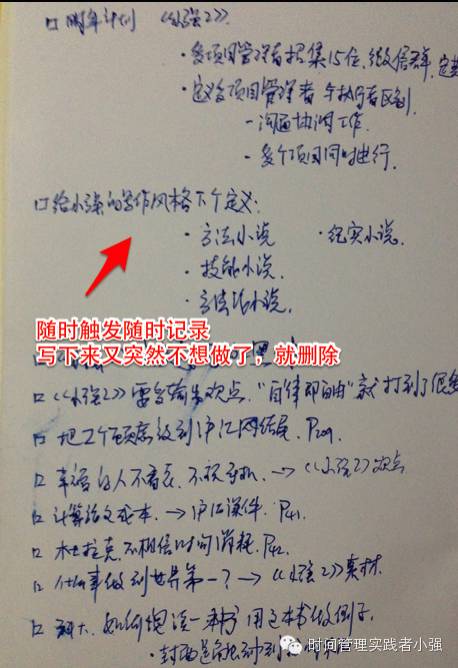 □ 明年计划 《小强2》
· 多项目管理者招集15位,微信群,定
· 定义多项目管理者与执行者区别
- 沟通协调工作.
- 多个项目同时进行.
□ 给小强的写作风格下个定义:
· 方法小说 · 纪实小说.
· 技能小说.
· 方法论小说.
随时触发随时记录
写下来又突然不想做了,就删除
□ 《小强2》需多输出观点,"自律即自由"就打到了很多
□ 把工作 到沪江网 P209.
□ 幸福的人不看表、不看手机. → 《小强2》观点
□ 计算 成本. → 沪江课件. P41.
□ 杜拉克 不相信时间消耗. P42.
□ 什么事做到世界第一? → 《小强2》素材.
□ 如何 读一本书 用这本书做例子.
· 封面
时间管理实践者小强